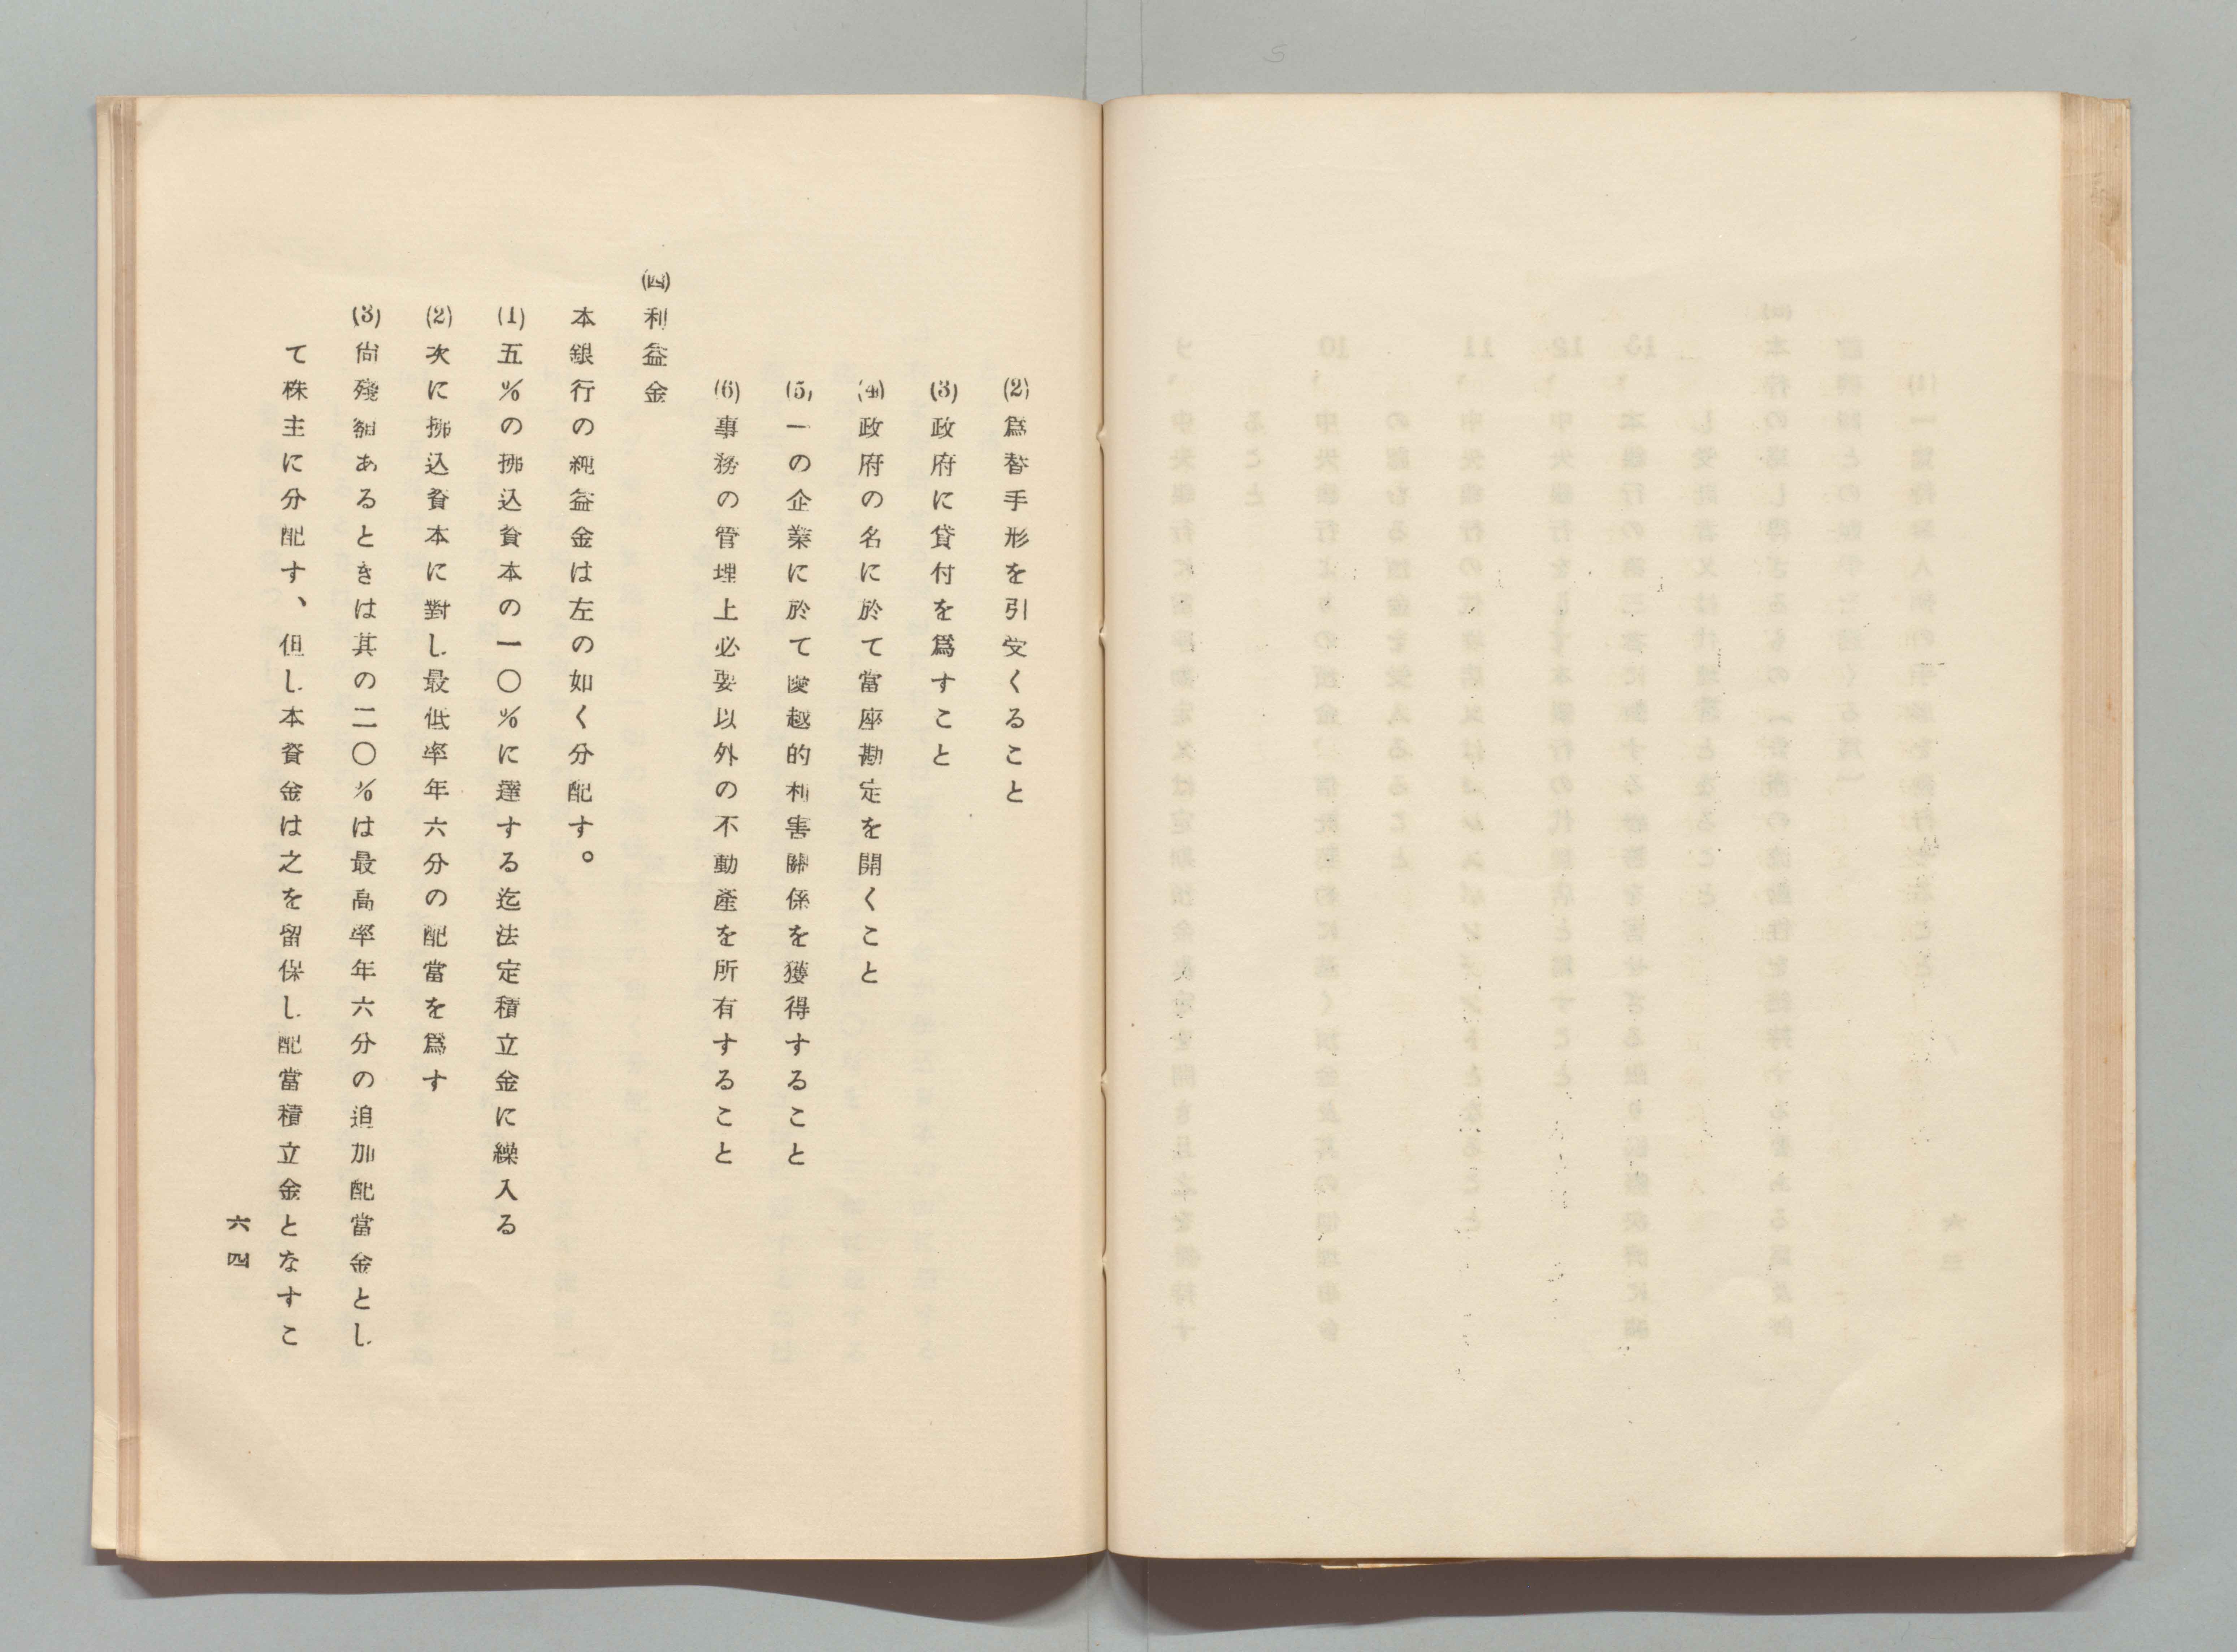 (2)爲替手形を引受くること
(3)政府に貸付を爲すこと
(4)政府の名に於て當座勘定を開くこと
(5)一の企業に於て優越的利害關係を獲得すること
(6)事務の管理上必要以外の不動產を所有すること
(四)利益金
本銀行の純益金は左の如く分配す。
(1)五%の拂込資本の一〇%に達する迄法定積立金に繰入る
(2)次に拂込資本に對し最低率年六分の配當を爲す
(3)尙殘額あるときは其の二〇%は最高率年六分の追加配當金とし
て株主に分配す、但し本資金は之を留保し配當積立金となすこ
六四